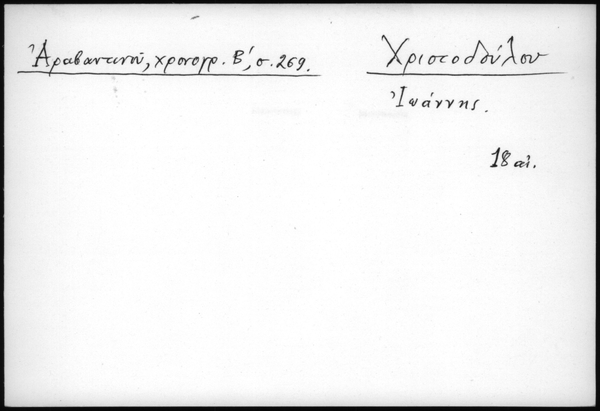 Ἀραβαντινοῦ, χρονογρ. Β΄, σ. 269.
Χριστοδούλου
Ἰωάννης.
18 αἰ.